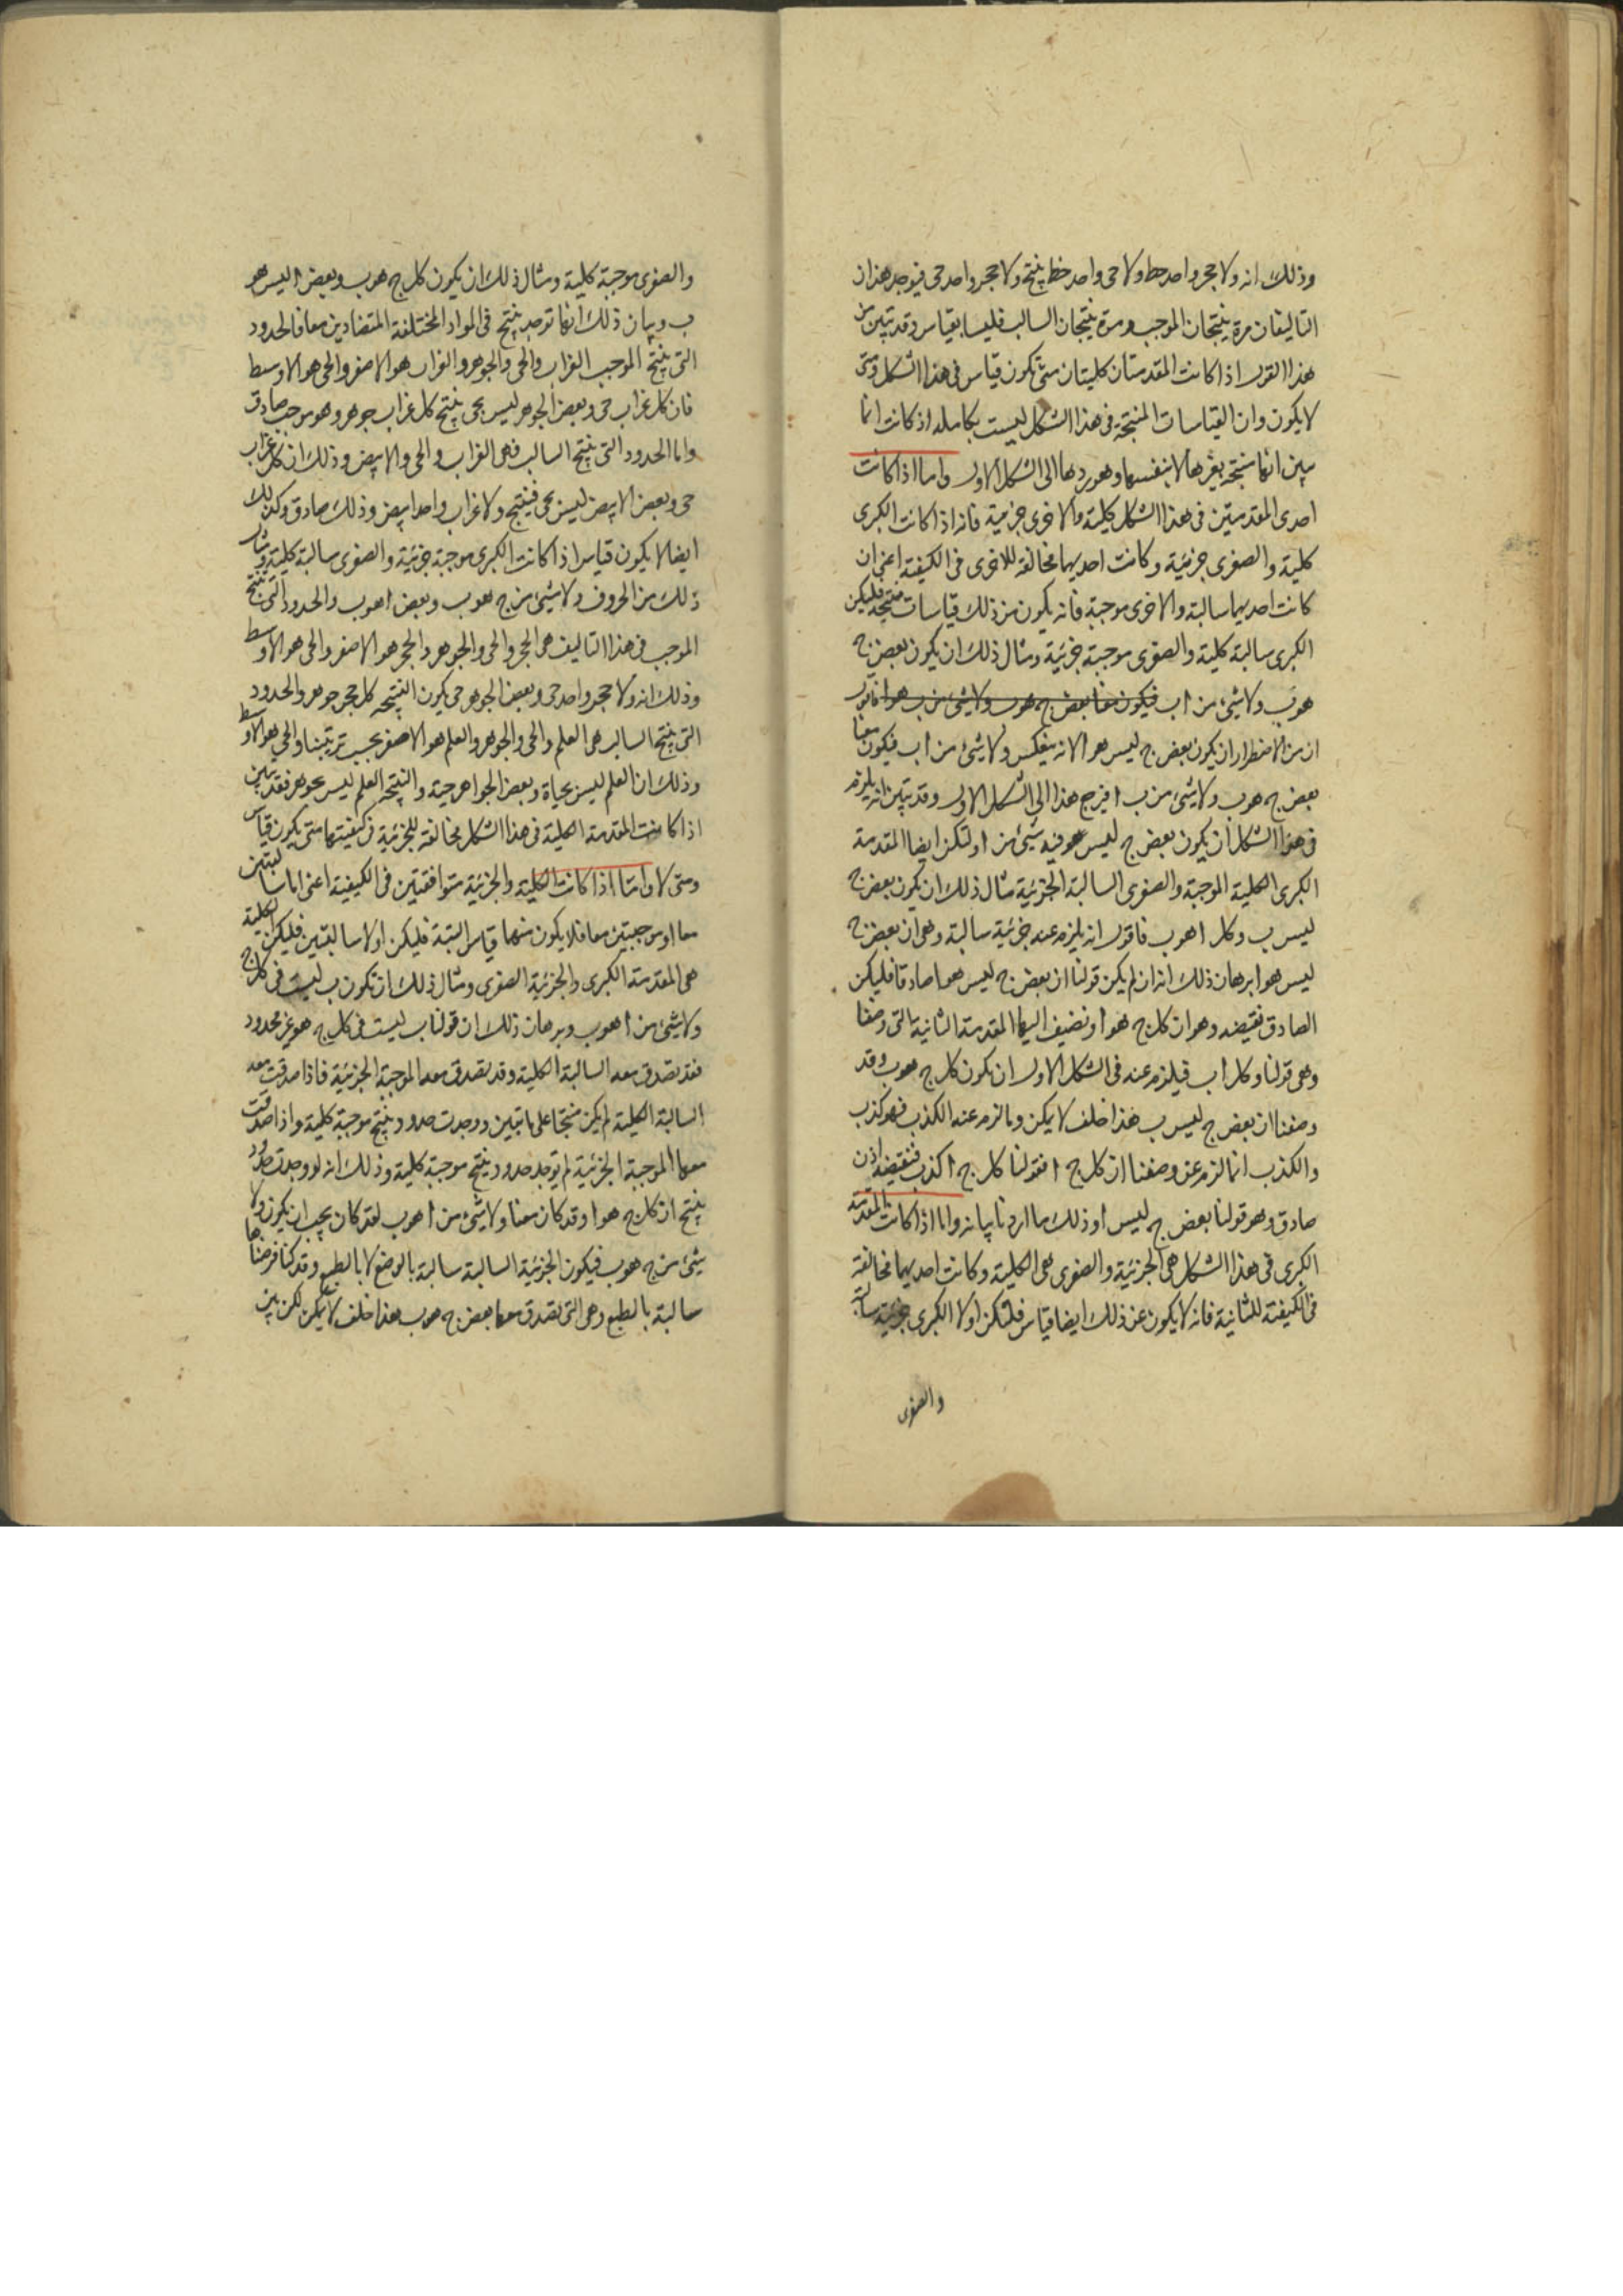 وذلك انه ولا حجر واحد خط ولا حى واحد خط ينتج ولا حجر واحد حى فيوجد هذان
التاليفان مرة ينتجان الموجب ومرة ينتجان السالب فليسا بقياس وقد تبين من
هذا القول اذا كانت المقدمتان كليتان متى تكون قياس فى هذا الشكل ومتى
لا يكون وان القياسات المنتجة فى هذا الشكل ليست بكاملة اذ كانت انما
يبين انها منتجة بغيرها لا بنفسها وهو ردها الى الشكل الاول واما اذا كانت
احدى المقدمتين فى هذا الشكل كلية والاخرى جزئية فانه اذا كانت الكبرى
كلية والصغرى جزئية وكانت احديهما مخالفة للاخرى فى الكيفية اعنى ان
كانت احديهما سالبة والاخرى موجبة فانه يكون من ذلك قياسات منتجة فليكن
الكبرى سالبة كلية والصغرى موجبة جزئية ومثال ذلك ان يكون بعض ج
هوب ولا شئ من ا ب فيكون معنا بعض ج هوب ولا شئ من ب هو ا فاقول
ان من الاضطرار ان يكون بعض ج ليس هو ا لانه ينعكس ولا شئ من ا ب فيكون معنا
بعض ج هوب ولا شئ من ب ا فيرجع هذا الى الشكل الاول وقد تبين انه يلزم
فى هذا الشكل ان يكون بعض ج ليس هو فيه شئ من ا ولتكن ايضا المقدمة
الكبرى الكلية الموجبة والصغرى السالبة الجزئية مثال ذلك ان يكون بعض ج
ليس ب وكل ا هوب فاقول انه يلزم عنه جزئية سالبة وهى ان بعض ج
ليس هو ا برهان ذلك انه ان لم يكن قولنا ان بعض ج ليس هو ا صادقا فليكن
الصادق نقيضه وهو ان كل ج هو ا ونضيف اليها المقدمة الثانية التى وضعنا
وهى قولنا وكل ا ب فيلزم عنه فى الشكل الاول ان يكون كل ج هوب وقد
وضعنا ان بعض ج ليس ب هذا خلف لا يمكن وما لزم عنه الكذب فهو كذب
والكذب انما لزم عن وضعنا ان كل ج ا فقولنا كل ج ا كذب فنقيضه اذن
صادق وهو قولنا بعض ج ليس ا وذلك ما اردنا بيانه واما اذا كانت المقدمة
الكبرى فى هذا الشكل هى الجزئية والصغرى هى الكلية وكانت احديهما مخالفة
فى الكيفية للثانية فانه لا يكون عن ذلك ايضا قياس فلتكن اولا الكبرى جزئية سالبة
والصغرى
والصغرى موجبة كلية ومثال ذلك ان يكون كل ج هوب وبعض ا ليس هو
ب وبيان ذلك انها توجد ينتج فى المواد المختلفة المتضادين معا فالحدود
التى ينتج الموجب الغراب والحى والجوهر والغراب هو الاصغر والحى هو الاوسط
فان كل غراب حى وبعض الجوهر ليس بحى ينتج كل غراب جوهر وهو موجب صادق
واما الحدود التى ينتج السالب فهى الغراب والحى والابيض وذلك ان كل غراب
حى وبعض الابيض ليس بحى فينتج ولا غراب واحد ابيض وذلك صادق وكذلك
ايضا لا يكون قياس اذا كانت الكبرى موجبة جزئية والصغرى سالبة كلية ومثال
ذلك من الحروف ولا شئ من ج هوب وبعض ا هوب والحدود التى ينتج
الموجب فى هذا التاليف هى الحجر والحى والجوهر والحجر هو الاصغر والحى هو الاوسط
وذلك انه ولا حجر واحد حى وبعض الجوهر حى يكون النتيجة كل حجر جوهر والحدود
التى ينتج السالب هى العلم والحى والجوهر والعلم هو الاصغر بحسب ترتيبنا والحى هو الاوسط
وذلك ان العلم ليس بحياة وبعض الجواهر حية والنتيجة العلم ليس بجوهر فقد تبين
اذا كانت المقدمة الكلية فى هذا الشكل مخالفة للجزئية فى كيفيتها متى يكون قياس
ومتى لا واما اذا كانت الكلية والجزئية متوافقتين فى الكيفية اعنى اما سالبتين
معا او موجبتين معا فلا يكون منهما قياس البتة فليكن اولا سالبتين فليكن الكلية
هى المقدمة الكبرى والجزئية الصغرى ومثال ذلك ان تكون ب ليست فى كل ج
ولا شئ من ا هوب وبرهان ذلك ان قولنا ب ليست فى كل ج هو غير محدود
فقد تصدق معه السالبة الكلية وقد تصدق معه الموجبة الجزئية فاذا صدقت معه
السالبة الكلية لم يكن منتجا على ما تبين ووجدت حدود ينتج موجبة كلية واذا صدقت
معها الموجبة الجزئية لم توجد حدود ينتج موجبة كلية وذلك انه لو وجدت حدود
ينتج ان كل ج هو ا وقد كان معنا ولا شئ من ا هوب لقد كان يجب ان يكون ولا
شئ من ج هوب فيكون الجزئية السالبة سالبة بالوضع لا بالطبع وقد كنا فرضناها
سالبة بالطبع وهى التى تصدق معها بعض ج هوب هذا خلف لا يمكن لكن بين